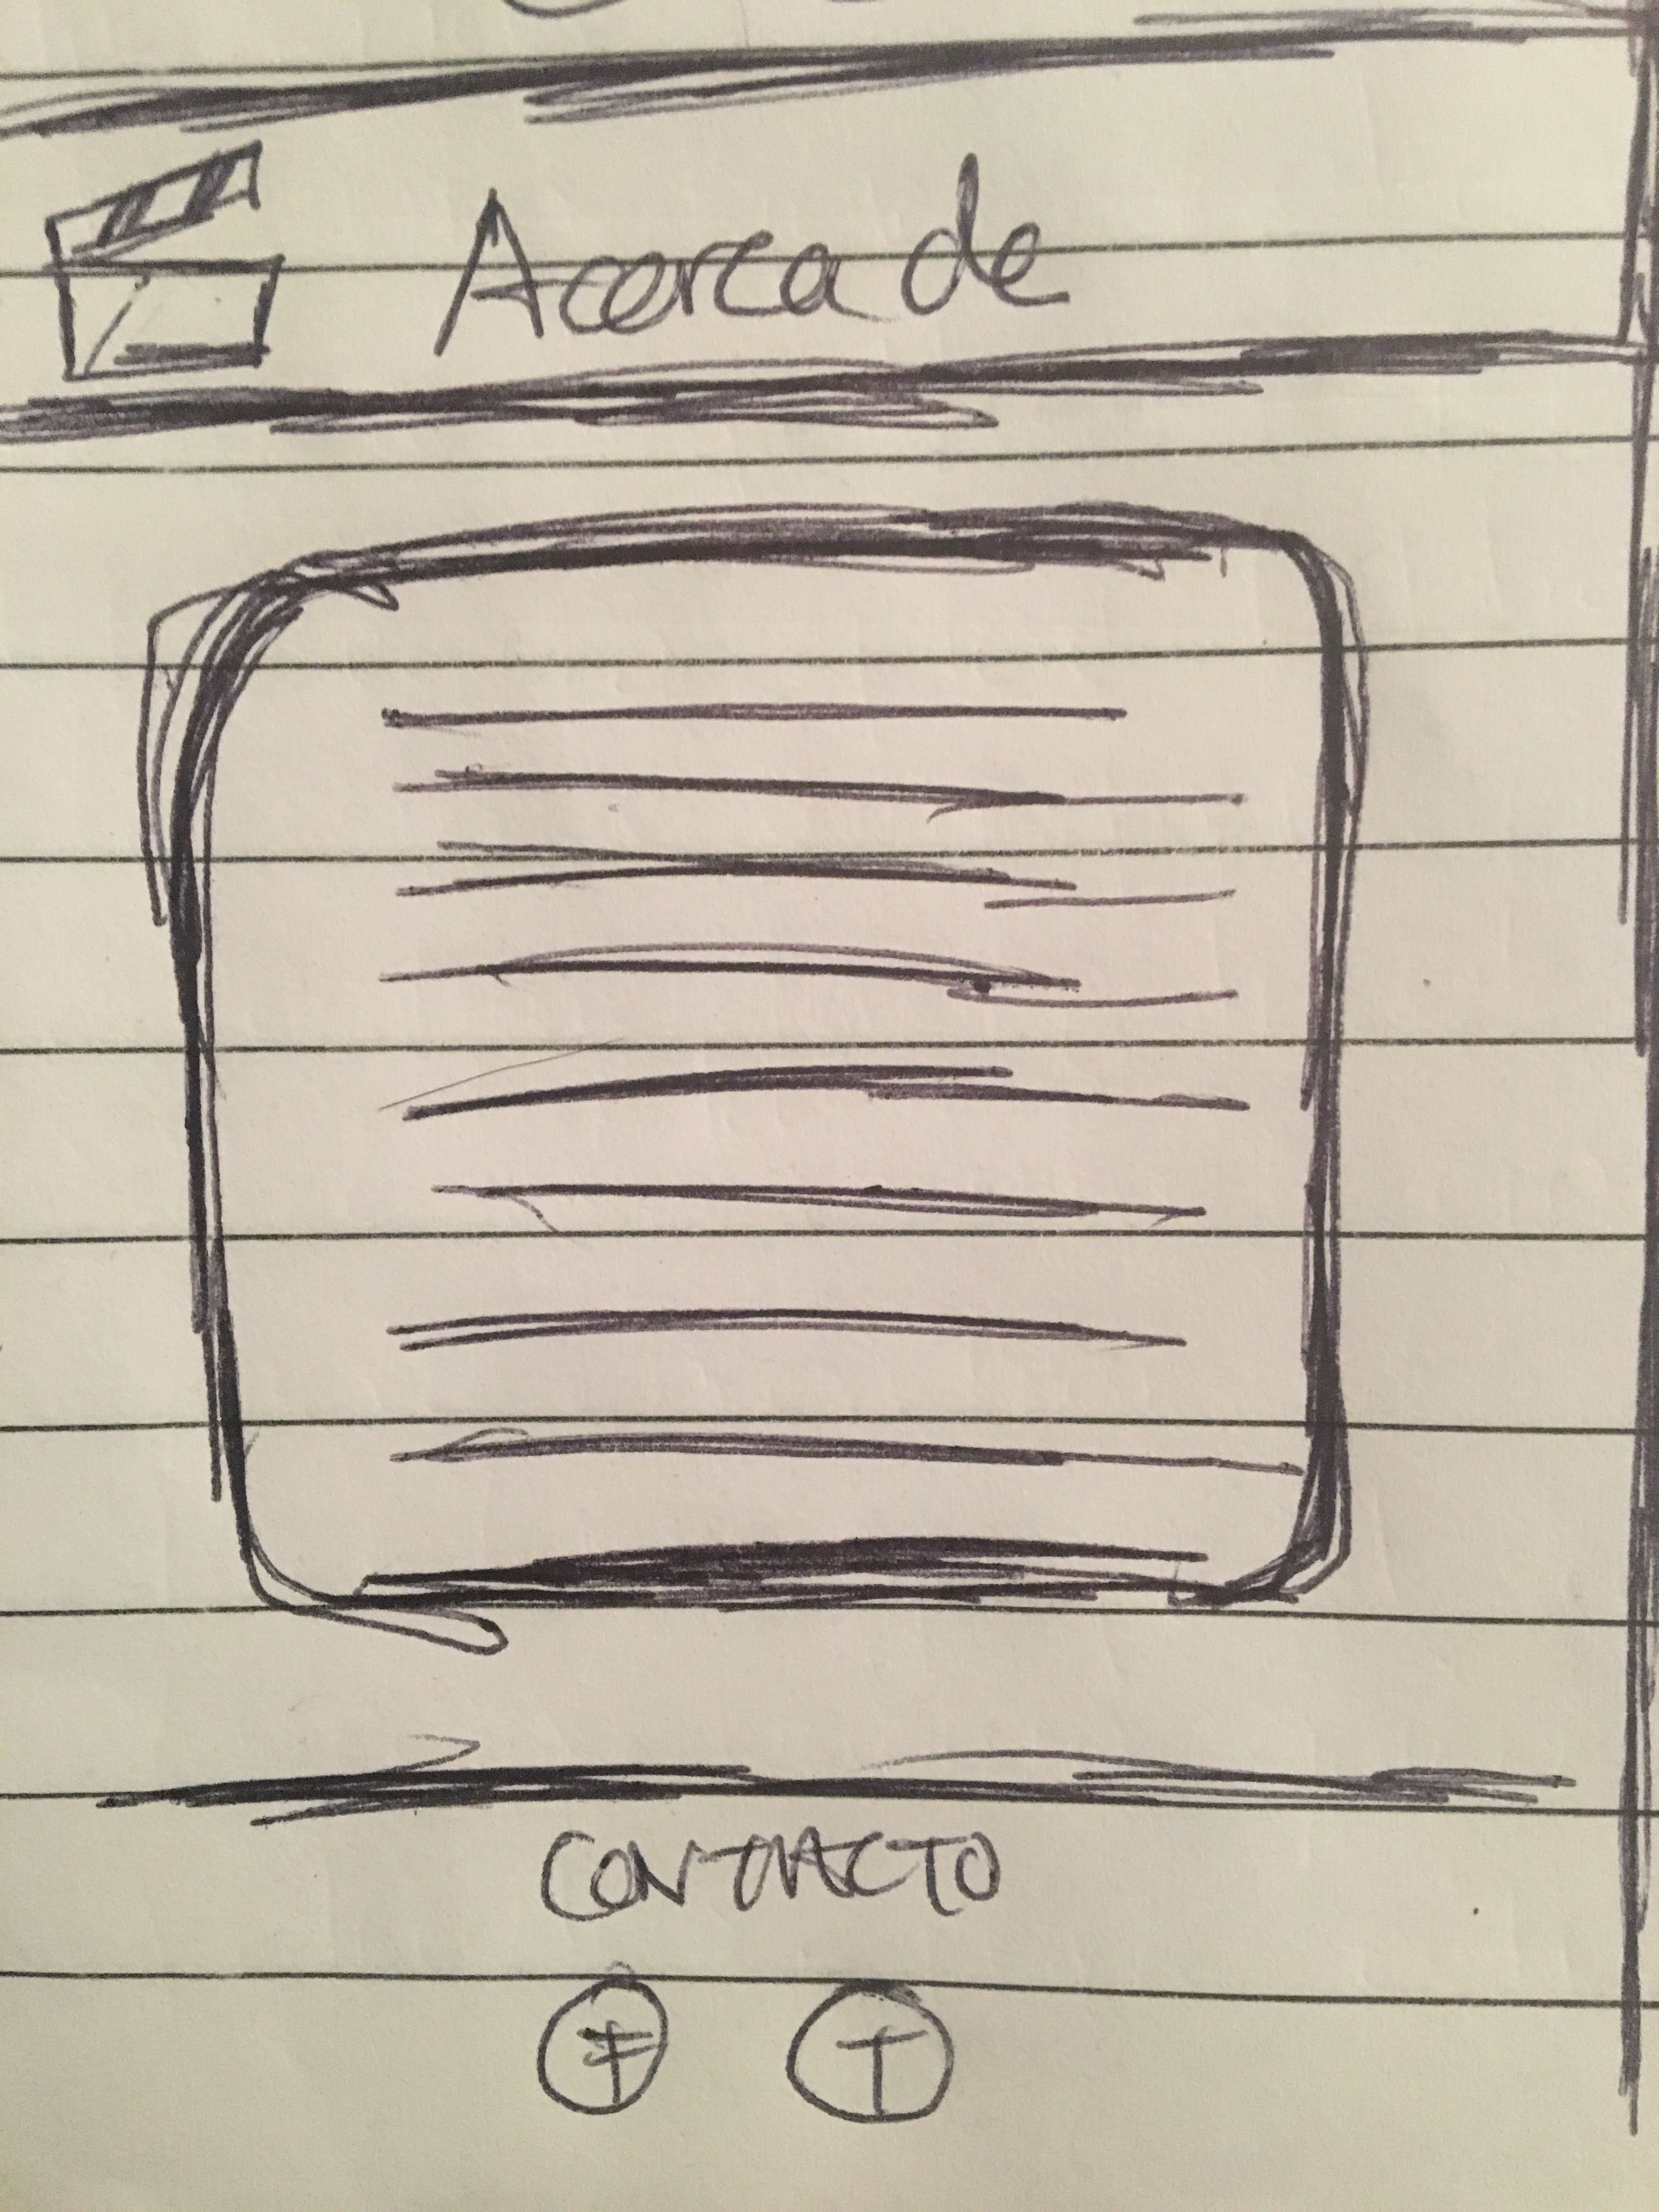 Acerca de
CONTACTO
F T